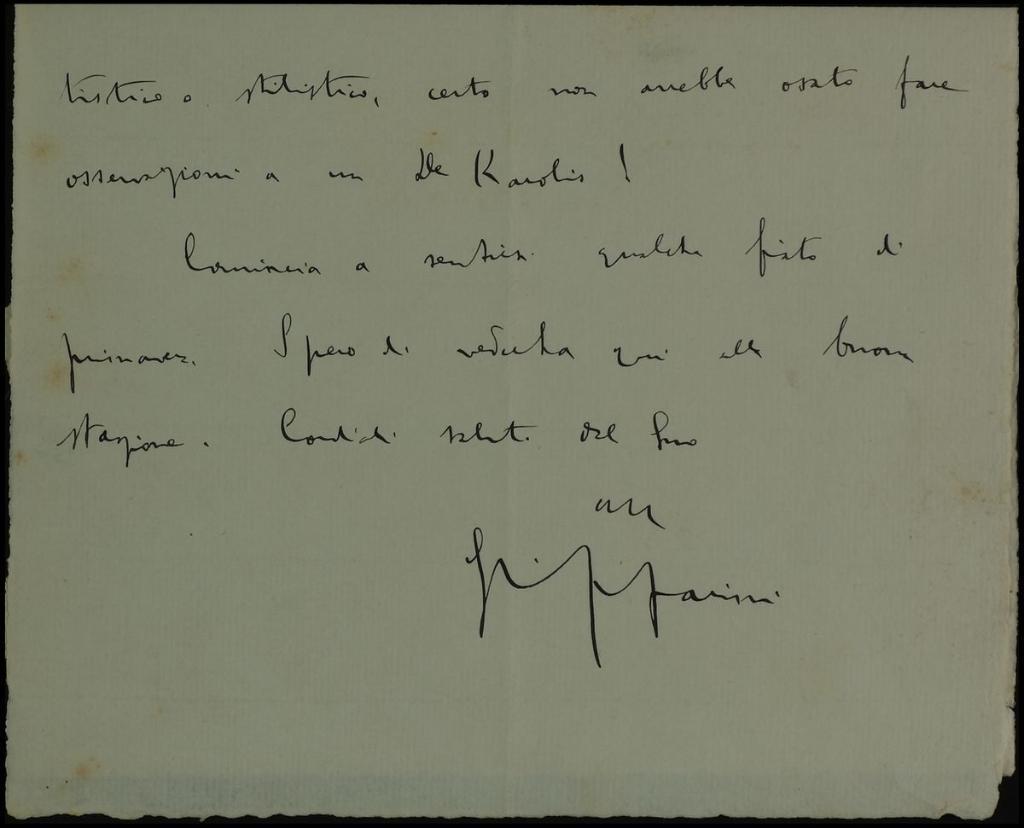 tistico o stilistico, certo non avrebbe osato fare
osservazioni a un De Karolis!
Comincia a sentirsi qualche fiato di
primavera. Spero di vederla qui alla buona
stazione. Cordiali saluti dal Suo